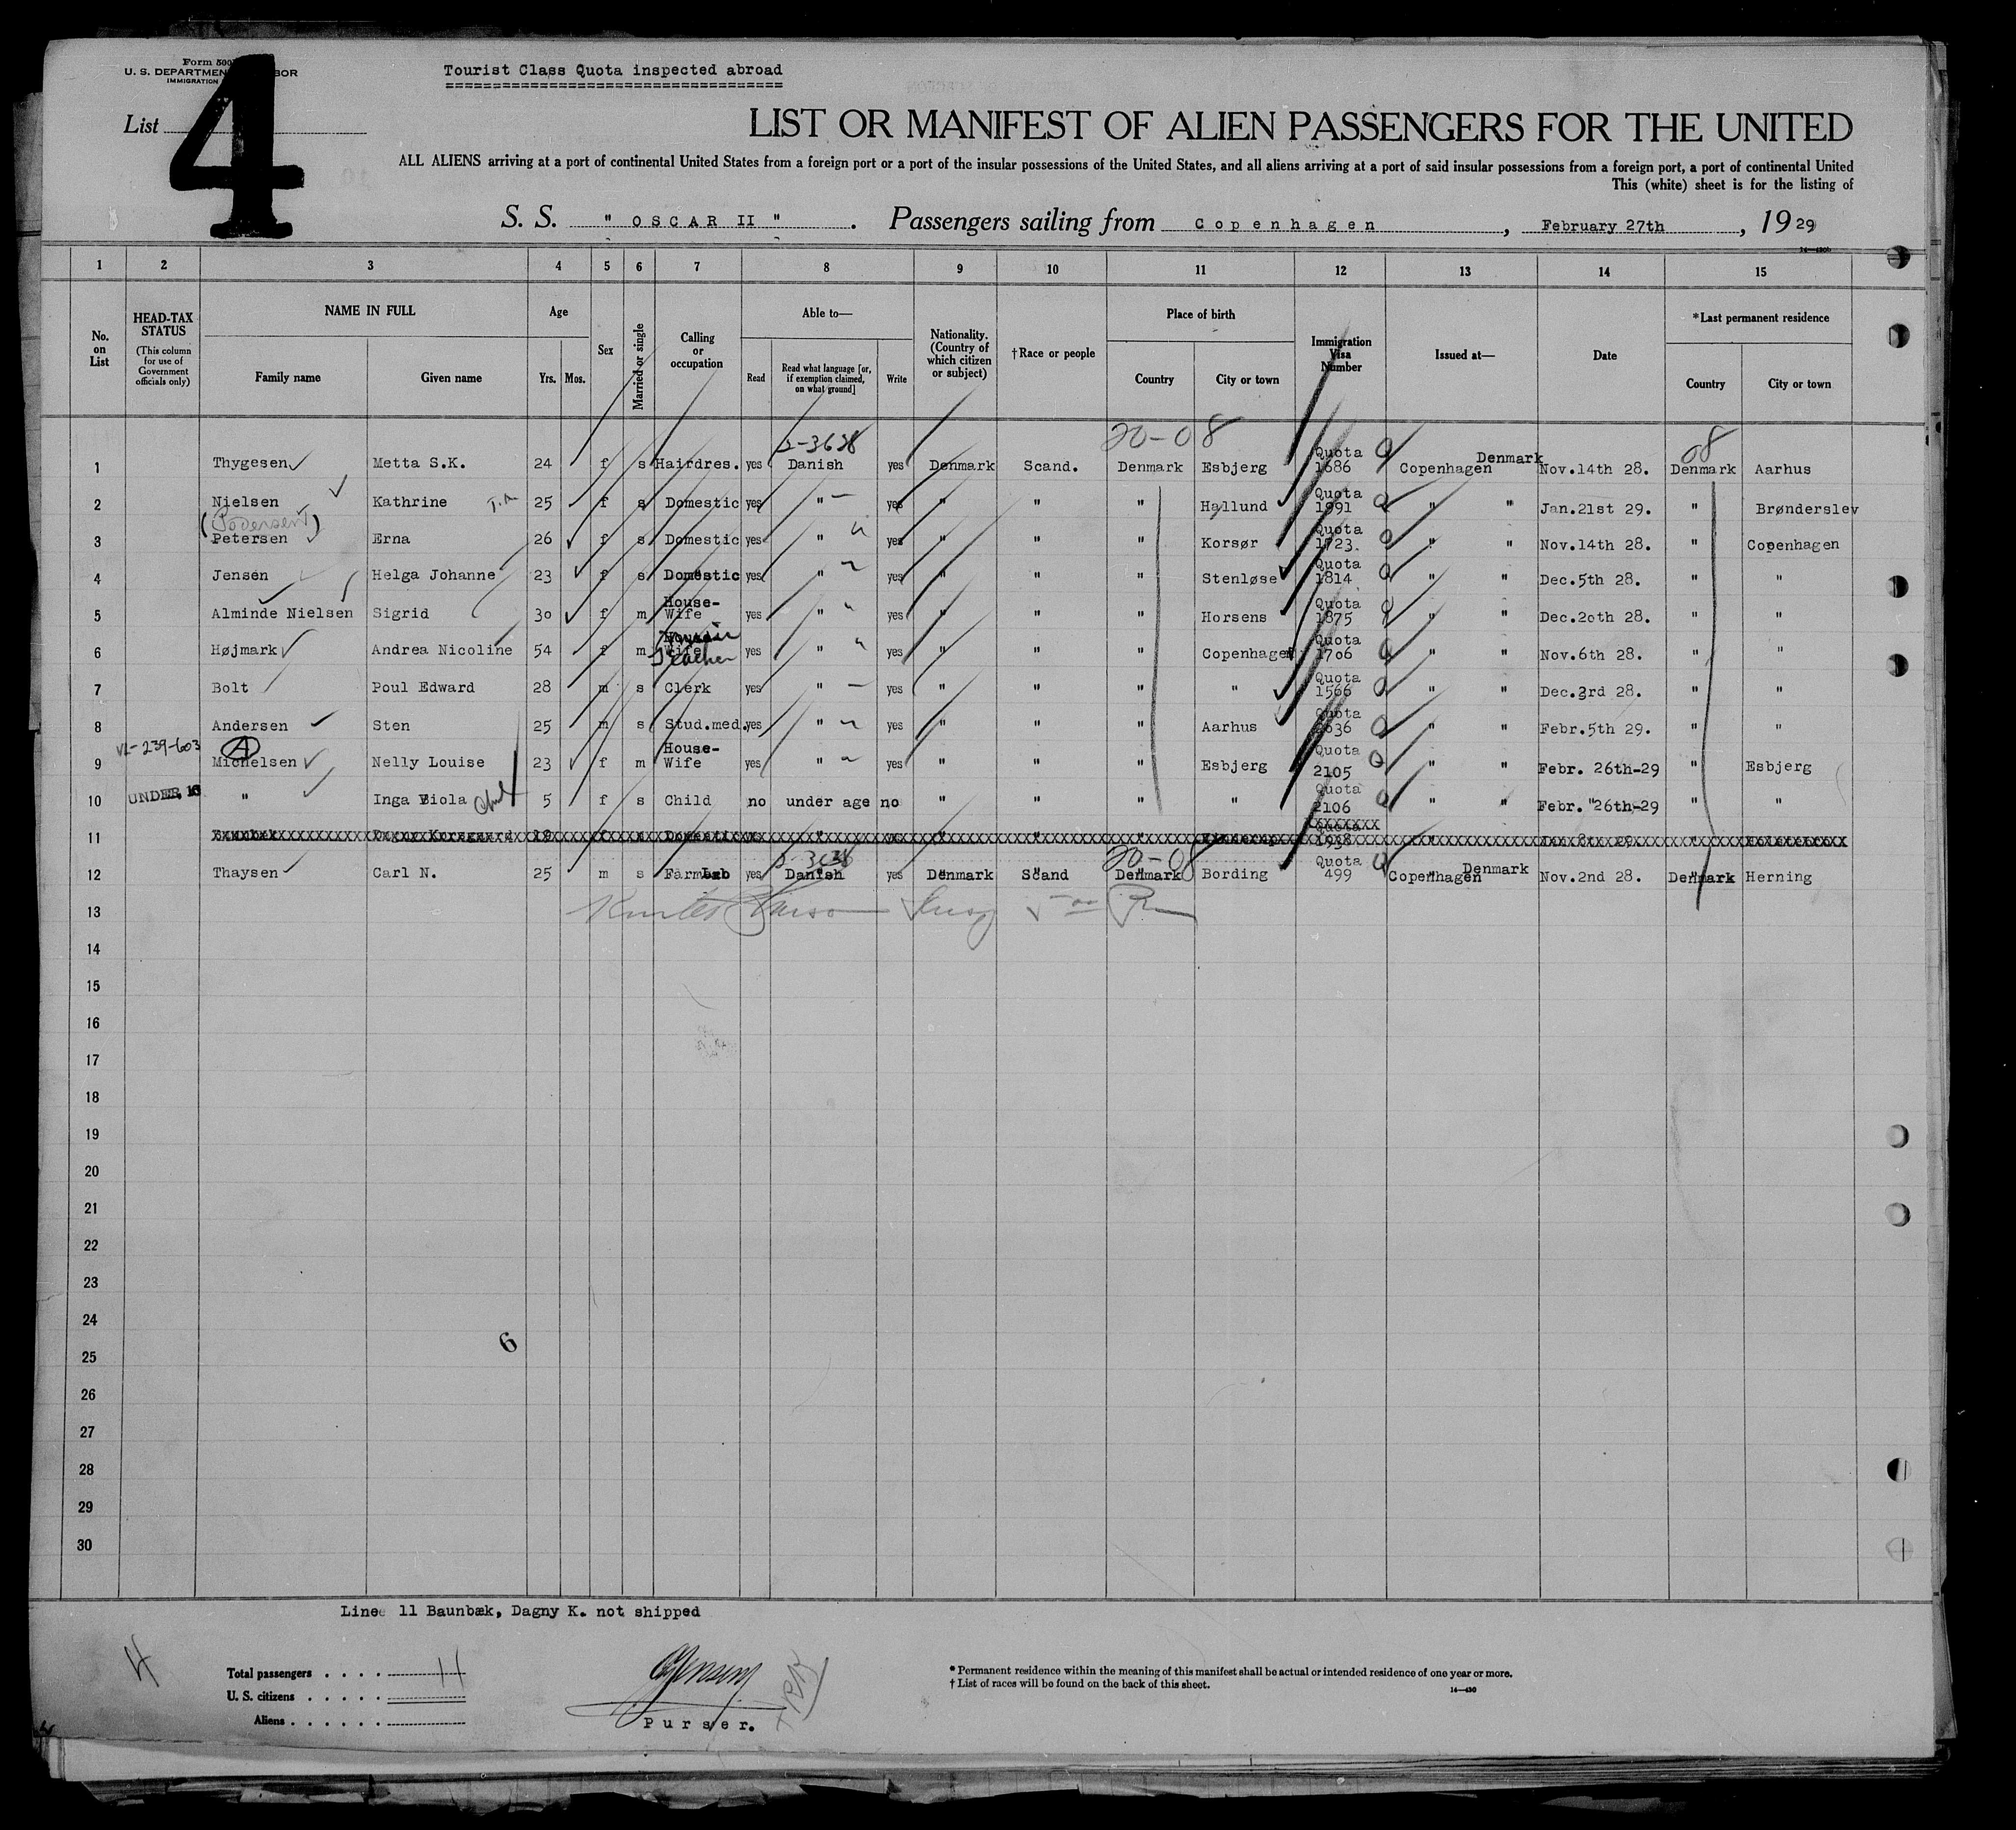 Form 500
U. S. DEPARTMENT LABOR
IMMIGRATION
Tourist Class Quota inspected abroad
List 4
LIST OR MANIFEST OF ALIEN PASSENGERS FOR THE UNITED
ALL ALIENS arriving at a port of continental United States from a foreign port or a port of the insular possessions of the United States, and all aliens arriving at a port of said insular possessions from a foreign port, a port of continental United
This (white) sheet is for the listing of
S. S. " OSCAR II " . Passengers sailing from Copenhagen , February 27th , 1929
1 2 3 4 5 6 7 8 9 10 11 12 13 14 15
No. on List
HEAD-TAX STATUS (This column for use of Government officials only)
NAME IN FULL
Family name Given name
Age
Yrs. Mos.
Sex
Married or single
Calling or occupation
Able to—
Read Read what language [or, if exemption claimed, on what ground] Write
Nationality. (Country of which citizen or subject)
†Race or people
Place of birth
Country City or town
Immigration Visa Number
Issued at—
Date
*Last permanent residence
Country City or town
20-08 08
1 Thygesen Metta S.K. 24 f s Hairdres. yes Danish yes Denmark Scand. Denmark Esbjerg Quota 1686 Copenhagen Denmark Nov.14th 28. Denmark Aarhus
2 Nielsen Kathrine 25 f s Domestic yes " yes " " " Hallund Quota 1991 " " Jan.21st 29. " Brønderslev
(Pedersen)
3 Petersen Erna 26 f s Domestic yes " yes " " " Korsør Quota 1723. " " Nov.14th 28. " Copenhagen
4 Jensen Helga Johanne 23 f s Domestic yes " yes " " " Stenløse Quota 1814 " " Dec.5th 28. " "
5 Alminde Nielsen Sigrid 30 f m House-Wife yes " yes " " " Horsens Quota 1875 " " Dec.20th 28. " "
6 Højmark Andrea Nicoline 54 f m House Wife Teacher yes " yes " " " Copenhagen Quota 1706 " " Nov.6th 28. " "
7 Bolt Poul Edward 28 m s Clerk yes " yes " " " " Quota 1566 " " Dec.3rd 28. " "
8 Andersen Sten 25 m s Stud.med. yes " yes " " " Aarhus Quota 2636 " " Febr.5th 29. " "
VL-239-603 A
9 Michelsen Nelly Louise 23 f m House-Wife yes " yes " " " Esbjerg Quota 2105 " " Febr. 26th-29 " Esbjerg
10 UNDER 16 " Inga Viola 5 f s Child no under age no " " " " Quota 2106 " " Febr. 26th-29 " "
11 Baunbæk Dagny Korsgaard 19 f s Domestic " " " " Quota 1938 " Jan. 8th 29. " Holstebro
20-08
12 Thaysen Carl N. 25 m s Farm Lab yes Danish yes Denmark Scand Denmark Bording Quota 499 Copenhagen Denmark Nov.2nd 28. Denmark Herning
13
14
15
16
17
18
19
20
21
22
23
24
6
25
26
27
28
29
30
Line 11 Baunbæk, Dagny K. not shipped
Total passengers . . . . 11
U. S. citizens . . . . .
Aliens . . . . . .
Purser.
* Permanent residence within the meaning of this manifest shall be actual or intended residence of one year or more.
† List of races will be found on the back of this sheet.
14—430